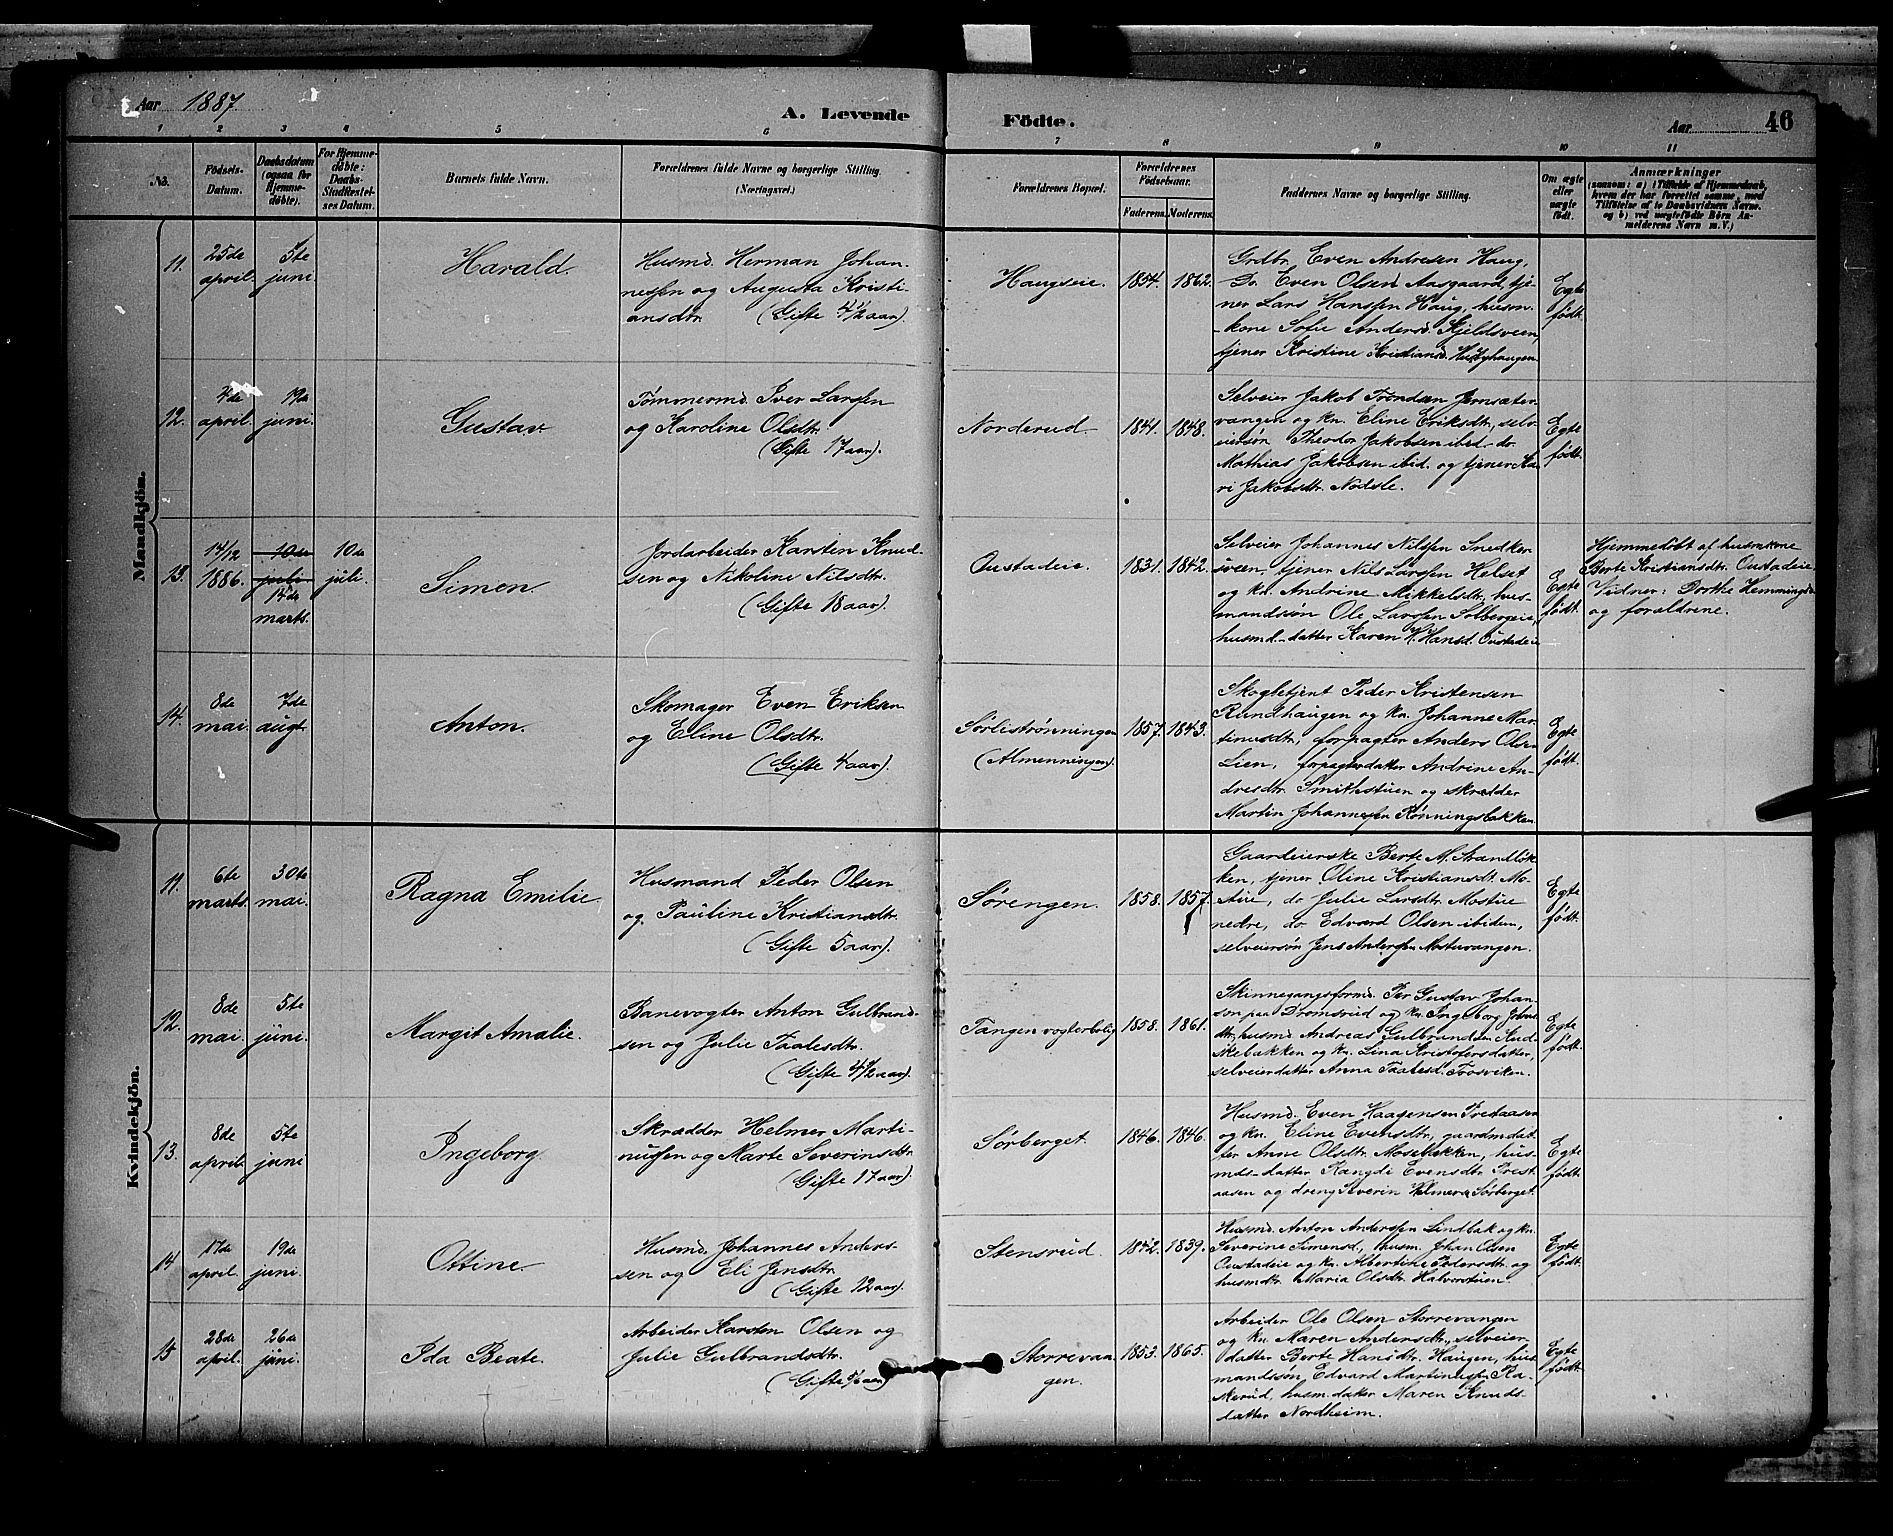 Aar 1887
A. Levende Födte.
Aar 46
1 2 3 4 5 6 7 8 9 10 11
No.
Födsels-Datum.
Daabsdatum (ogsaa for Hjemmedöbte).
For Hjemmedöbte: Daabs-Stadfæstelses Datum.
Barnets fulde Navn.
Forældrenes fulde Navne og borgerlige Stilling (Næringsvei.)
Forældrenes Bopæl.
Forældrenes Födselsaar.
Faderens. Moderens.
Faddernes Navne og borgerlige Stilling.
Om ægte eller uægte födt.
Anmærkninger
(saasom: a) i Tilfælde af Hjemmedaab, hvem der har forrettet samme, med Tilföielse af to Daabsvidners Navne, og b) ved uægtefödte Börn Anmelderens Navn m. V.)
Mandkjön.
11. 25de april 5te juni Harald.
Husmd. Herman Johan-
nessen og Augusta Kristi-
ansdtr. (Gifte 4 1/2 aar).
Haugseie. 1854. 1862.
Grdbr. Even Andresen Haug,
Do. Even Olsen Aasgaard, tje-
ner Lars Hanssen Haug, husm-
kone Sofie Andersd. Kjeldsveen,
tjener Kristine Kristiansd. Husbyhaugen
Egte födt.
12. 4de april. 19de juni. Gustav.
Tømmermd. Iver Larsen
og Karoline Olsdtr.
(Gifte 17 aar).
Norderud. 1841. 1848.
Selveier Jakob Trondsen Jernsæter-
vangen og kn. Eline Eriksdtr., selv-
eiersøn Theodor Jakobsen ibid. do.
Mathias Jakobsen ibid. og tjener Ka-
ri Jakobsdtr. Nodsle.
Egte födt.
13. 14/12 1886. 10de juli 14de marts. 10de juli. Simen.
Jordarbeider Karsten Knud-
sen og Nikoline Nilsdtr.
(Gifte 18 aar).
Oustadeie. 1831. 1842.
Selveier Johannes Nilssen Snedker-
sveen, tjener Nils Larssen Helset
og kn. Andrine Mikkelsdtr, hus-
mandssøn Ole Larssen Solbergeie,
husmd.-datter Karen K. Hansd. Oustadeie
Egte födt.
Hjemmedöbt af husmkone
Berte Kristiansdtr. Oustadeie.
Vidner: Dorthe Hemmingsd.
og forældrene.
14. 8de mai. 7de augt. Anton.
Skomager Even Eriksen
og Eline Olsdtr.
(Gifte 4 aar).
Sørlistrønningen
(Almenningen). 1857. 1843.
Skogbetjent Peder Kristensen
Rundhaugen og kn. Johanne Mar-
tinusdtr, forpagter Anders Olsen
Lien, forpagterdatter Andrine An-
dresdtr. Smithstuen og skrædder
Martin Johannessen Rønningsbakken
Egte födt.
Kvindekjön.
11. 6te marts. 30te mai. Ragna Emilie.
Husmand Peder Olsen
og Pauline Kristiansdtr.
(Gifte 5 aar).
Sørengen. 1858. 1857.
Gaardeierske Berte M. Strandløk-
ken, tjener Oline Kristiansdt. Mo-
stue, do Julie Larsdtr. Mostue
nedre, do Edvard Olsen ibidem,
selveiersøn Jens Anderssen Mostuvangen.
Egte födt.
12. 8de mai. 5te juni. Margit Amalie.
Banevogter Anton Gulbrand-
sen og Julie Taalesdtr.
(Gifte 4 1/2 aar).
Tangen vogterbolig 1858. 1861.
Skinnegangsformd. Per Gustav Johan-
son paa Dromsrud og kn. Ingeborg
husmd Andreas Gulbrandsen
og kn. Lina Kristofersdatter,
selveierdatter Anna Taalesd. Fosviken.
Egte födt.
13. 8de april. 5te juni Ingeborg.
Skrædder Helmer Marti-
nussen og Marte Severinsdtr.
(Gifte 17 aar).
Sørberget. 1846. 1846.
Husmd. Even Haagensen Prestaasen
og kn. Eline Evensdtr, gaardmdat-
ter Anne Olsdtr. Mosebakken, hus-
mds-datter Rangdi Evensdtr. Prest-
aasen og dreng Severin Helmersen Sørberget.
Egte födt.
14 17de april. 19de juni. Ottine.
Husmd. Johannes Anders-
sen og Eli Jensdtr.
(Gifte 12 aar).
Stensrud. 1842. 1839.
Husmd. Anton Anderssen Lindbak og kn.
Severine Simensd., husm. Johan Olsen
Oustadeie og kn. Albertine Pedersdtr. og
husmdtr. Maria Olsdtr. Halvorstuen
Egte födt.
15 28de april. 26de juni. Ida Beate.
Arbeider Karsten Olsen og
Julie Gulbrandsdtr.
(Gifte aar)
Storrevan-
gen. 1853. 1865.
Arbeider Ole Olsen Storrevangen
og kn. Maren Andersdtr., selveier-
datter Berte Hansdtr. Haugen, hus-
mandssøn Edvard Martinussen Ra-
kerud, husm.datter Maren Knuds-
datter Nordheim.
Egte födt.